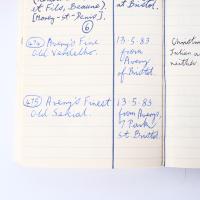 et Fils, Beaune).
[Morey-St-Denis].
6
at Bristol.
474 Avery's Fine
Old Verdelho.
13.5.83
from
Avery
of Bristol.
475 Avery's Finest
Old Sercial.
13.5.83
from Avery's,
7 Park
St Bristol.
Julian a
neither